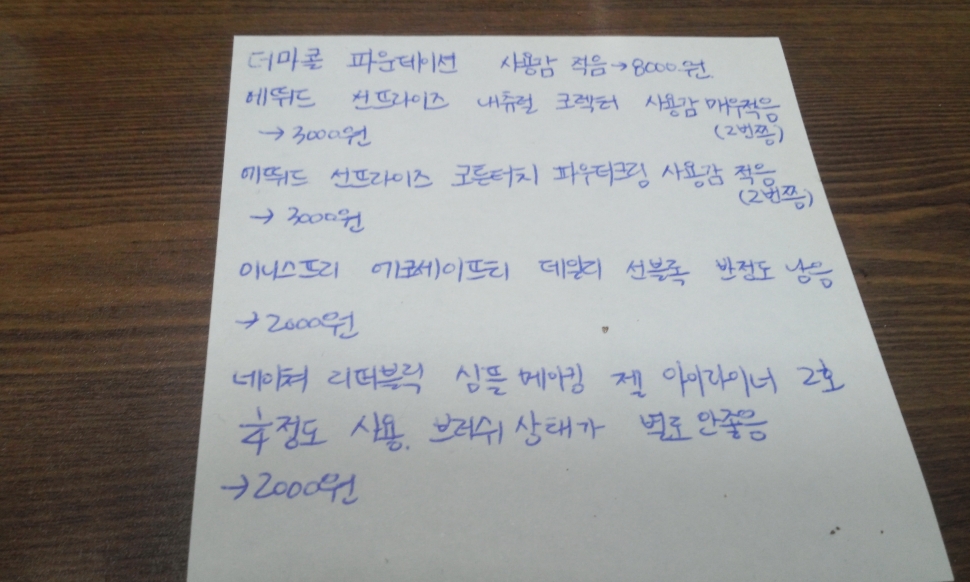 더마콜 파운데이션 사용감 적음→8000원
에뛰드 썬프라이즈 내츄럴 코렉터 사용감 매우적음
→3000원 (2번쯤)
에뛰드 썬프라이즈 코튼터치 파우더크링 사용감 적음
(2번쯤)
→3000원
이니스프리 에코세이프티 데일리 선블록 반정도 남음
→2000원
네이쳐 리퍼블릭 심플 메이킹 젤 아이라이너 2호
1/4정도 사용. 브러쉬 상태가 별로 안좋음
→2000원